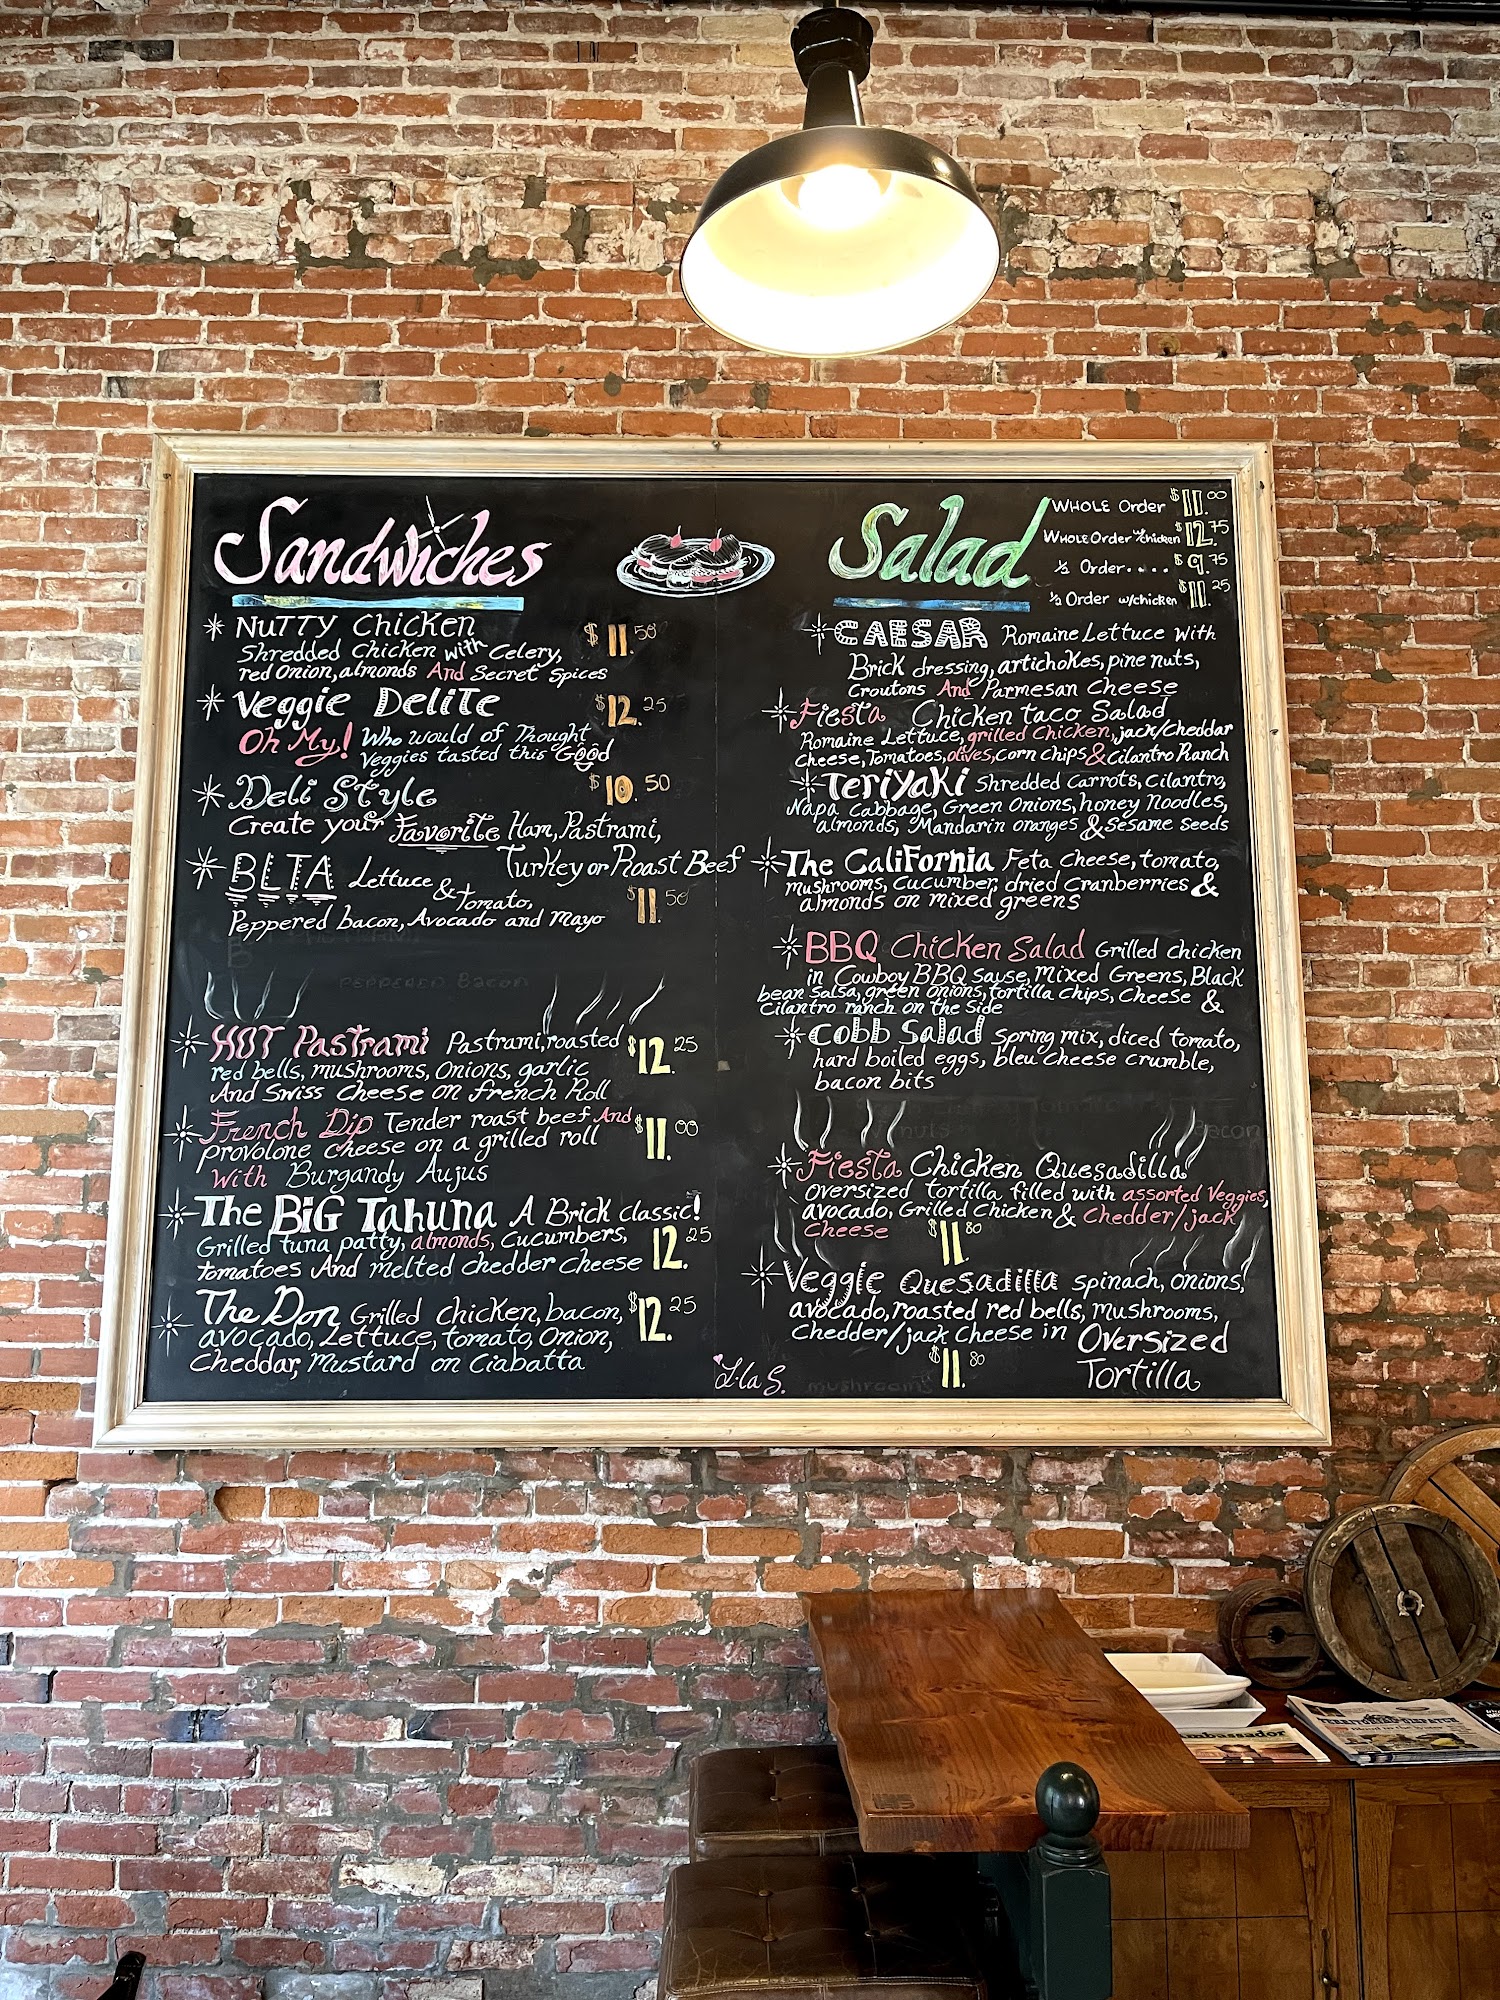 Sandwiches
NuTTY Chicken $11.50
Shredded Chicken with Celery,
red Onion, almonds And Secret Spices
Veggie DeliTe $12.25
Oh My! Who would of Thought
Veggies tasted this Good
Deli Style $10.50
Create your Favorite Ham, Pastrami,
Turkey or Roast Beef
BLTA Lettuce & Tomato, $11.50
Peppered bacon, Avocado and Mayo
PEPPERED Bacon
HOT Pastrami Pastrami, roasted $12.25
red bells, mushrooms, Onions, garlic
And Swiss Cheese on french Roll
French Dip Tender roast beef And $11.00
provolone cheese on a grilled roll
With Burgandy Aujus
The BiG Tahuna A Brick classic!
Grilled tuna patty, almonds, cucumbers, 12.25
tomatoes And melted chedder Cheese
The Don Grilled chicken, bacon, $12.25
avocado, Lettuce, tomato, Onion,
Cheddar, Mustard on Ciabatta
Salad
WHOLE Order $11.00
WHOLE Order w/chicken $12.75
½ Order.... $9.75
½ Order w/chicken $11.25
CAESAR Romaine Lettuce With
Brick dressing, artichokes, pine nuts,
Croutons And Parmesan Cheese
Fiesta Chicken taco Salad
Romaine Lettuce, grilled Chicken, jack/cheddar
Cheese, Tomatoes, olives, corn chips & Cilantro Ranch
Teriyaki Shredded Carrots, Cilantro,
Napa Cabbage, Green Onions, honey Noodles,
almonds, Mandarin oranges & Sesame Seeds
The CaliFornia Feta Cheese, tomato,
mushrooms, cucumber, dried Cranberries &
almonds on mixed greens
BBQ Chicken Salad Grilled chicken
in Cowboy BBQ Sause, Mixed Greens, Black
bean Salsa, green Onions, tortilla Chips, Cheese &
Cilantro ranch on the Side
Cobb Salad Spring mix, diced tomato,
hard boiled eggs, bleu cheese crumble,
bacon bits
Bacon
Fiesta Chicken Quesadilla
Oversized tortilla filled with assorted Veggies,
avocado, Grilled Chicken & Chedder/jack
Cheese $11.80
Veggie Quesadilla spinach, onions,
avocado, roasted red bells, mushrooms,
Chedder/jack Cheese in Oversized
Tortilla
$11.80
mushrooms